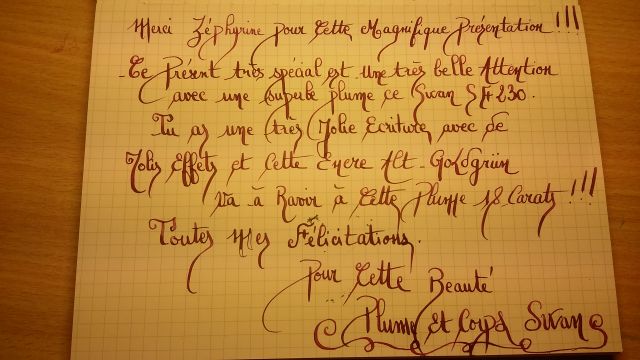 Merci Zéphyrine pour Cette Magnifique Présentation !!!
- Ce Présent très spécial est Une très belle Attention
avec une superbe plume ce Swan SF 230.
Tu as une très Jolie Ecriture, avec de
Jolis Effets et Cette Encre Alt-Goldgrün
Va à Ravir à Cette Plume 18 Carats !!!
Toutes Mes Félicitations.
Pour Cette Beauté
Plume et Corps Swan